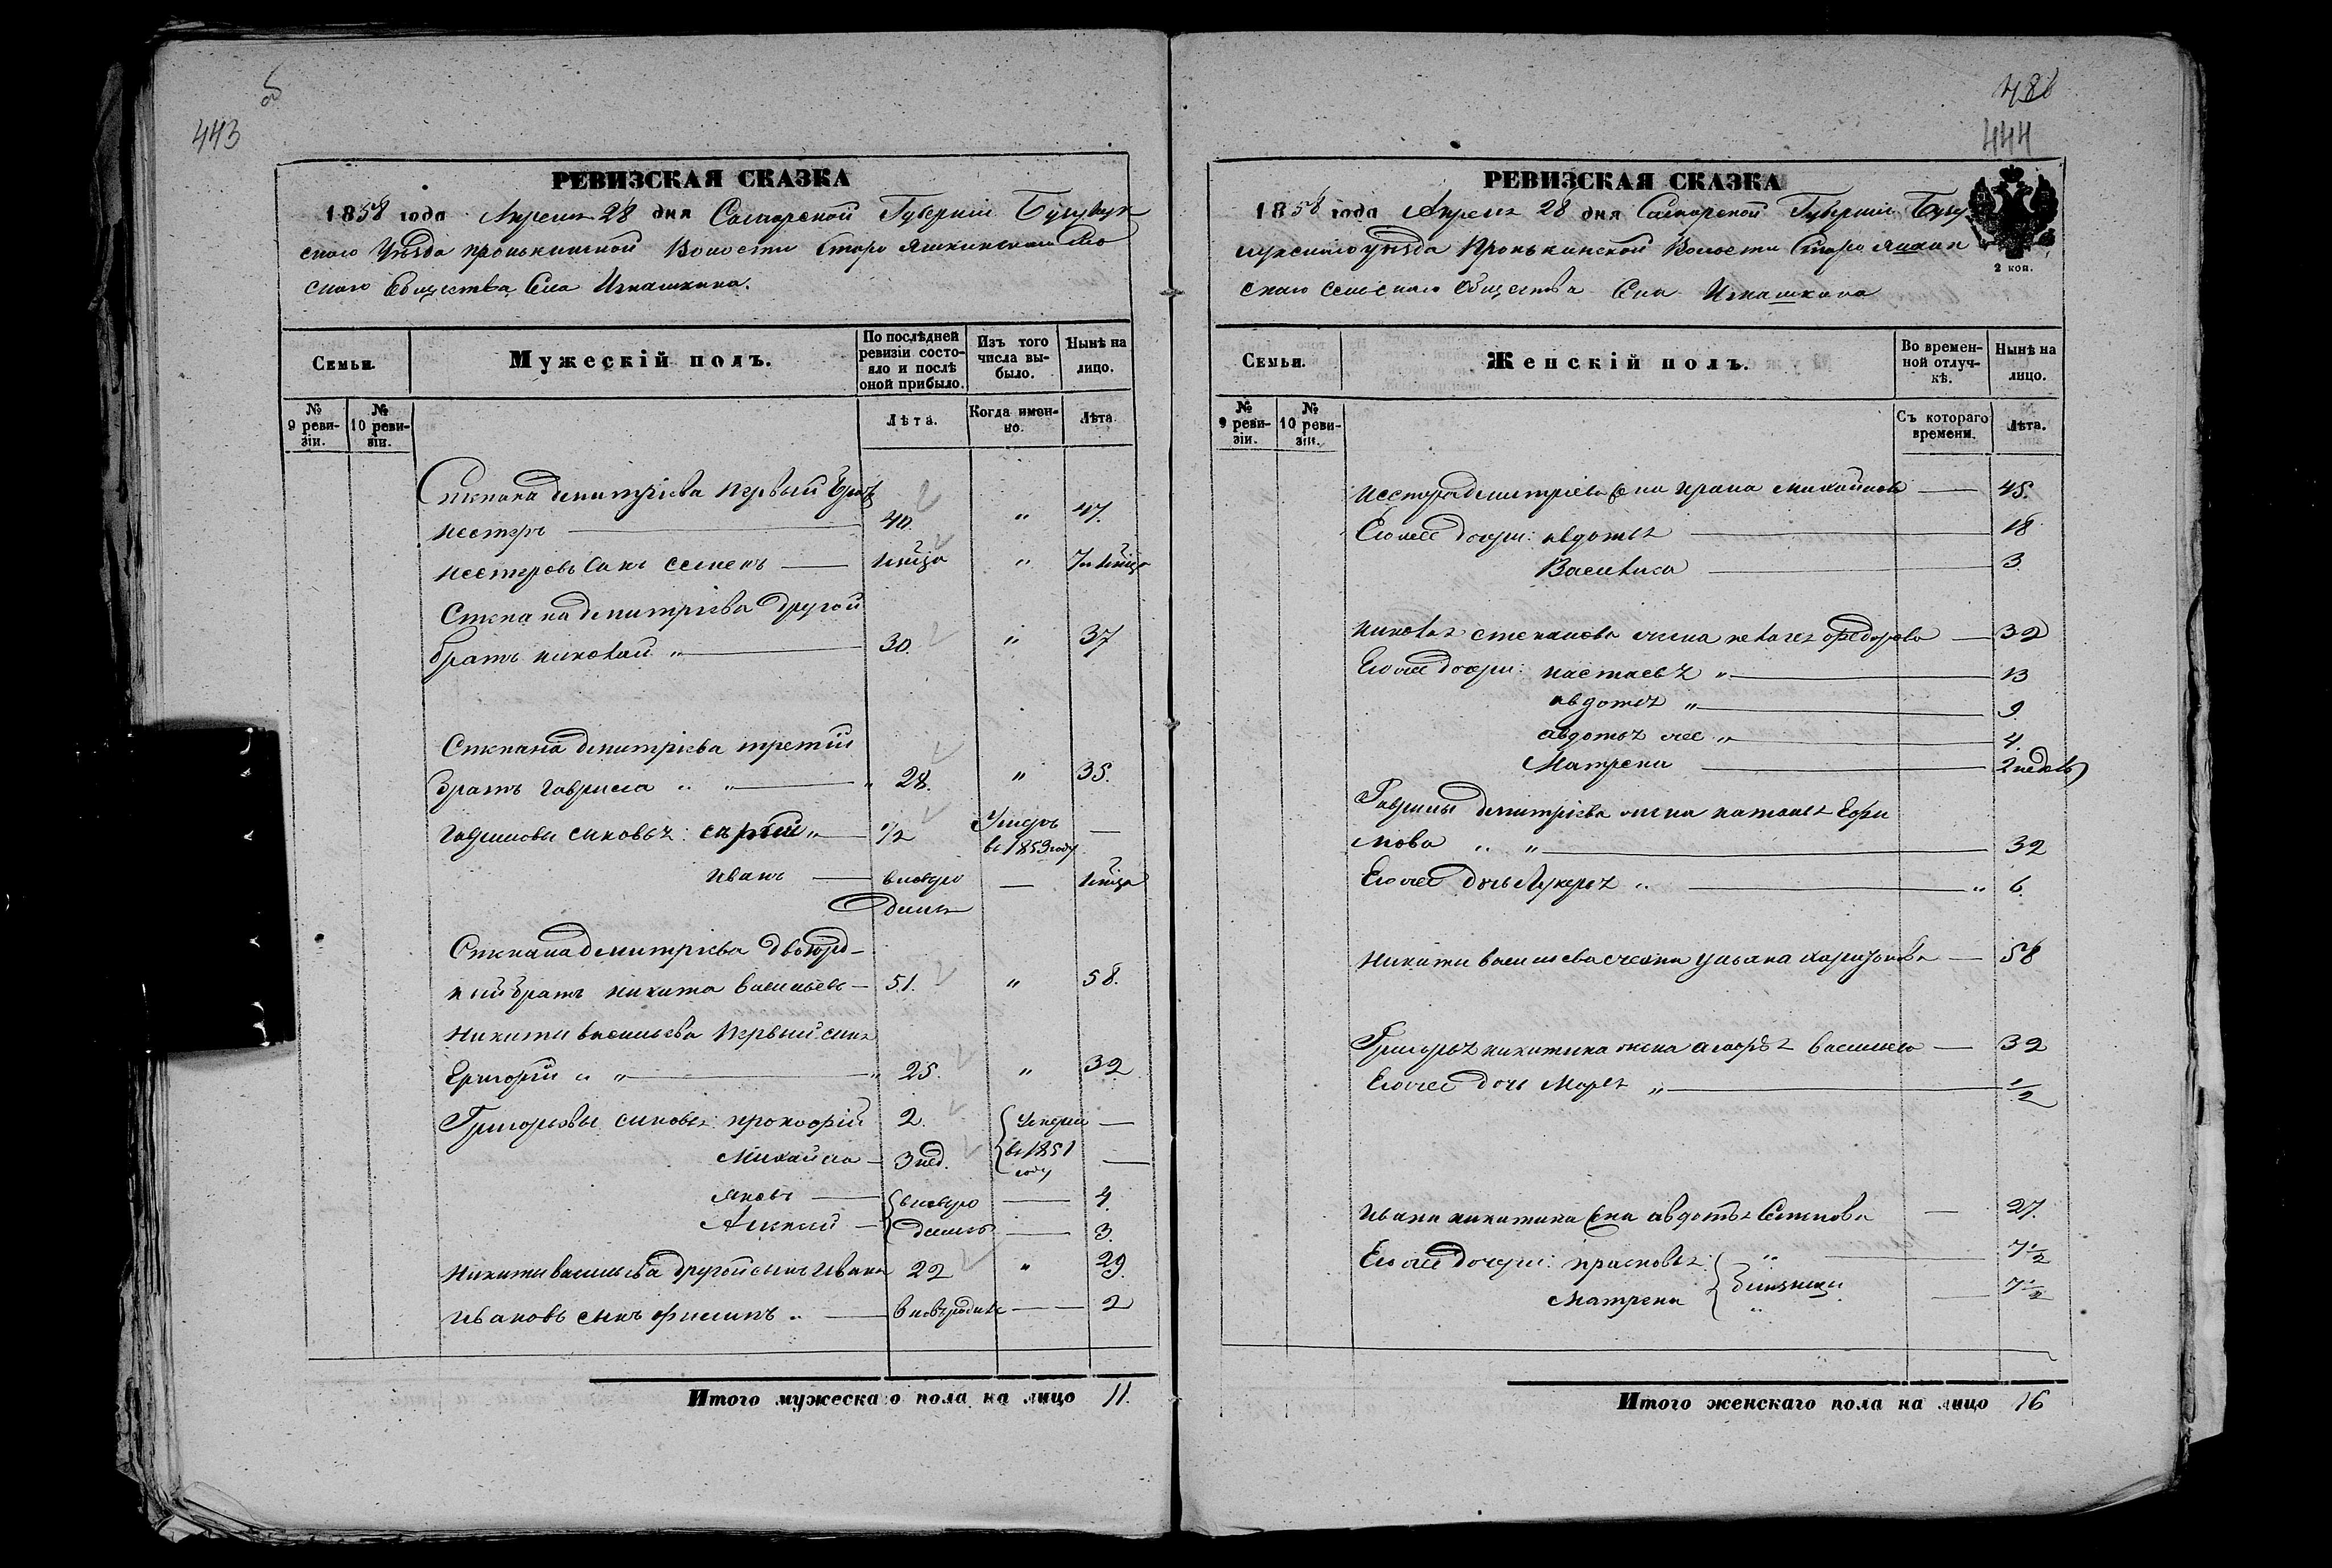 443
РЕВИЗСКАЯ СКАЗКА
1858 года Апреля 28 дня Самарской Губернии Бугульм
скаго Уѣзда Пронькинской Волости Старо Яшкинскаго
скаго Общества Села Игнашкина.
Семьи.
Мужескій полъ.
По послѣдней ревизіи состояло и послѣ оной прибыло.
Изъ того числа выбыло.
Нынѣ на лицо.
№ 9 ревизіи.
№ 10 ревизіи.
Лѣта.
Когда именно.
Лѣта.
Степана дмитріева первый братъ
нестеръ 40. " 47.
нестеровъ сынъ семенъ
Степана дмитріева другой
братъ николай " 30. " 37
Степана дмитріева третій
братъ гаврила " " 28. " 35.
гавриловы сыновья: сергѣй " 1/2 Умеръ въ 1853 году —
иванъ — вновьро — мѣсяца
дился
Степана дмитріева двоюрод-
ный братъ никита васильевъ — 51. " 58.
Никиты васильева первый сынъ
Григорій " " 25. " 32
Григорьевы сыновья прокофій 2. Умерли —
Михайла — 3 нед. въ 1851 году —
яковъ — вновьро — 4.
Алексѣй — дились — 3.
Никиты васильева другой сынъ Иванъ 22 " 29.
Ивановъ сынъ филипъ " — вновьродился — 2
Итого мужескаго пола на лицо 11.
444
РЕВИЗСКАЯ СКАЗКА
1858 года Апреля 28 дня Самарской Губерніи Бугу
скаго уѣзда Пронькинской Волости Старо Яшкин
скаго сельскаго Общества Села Игнашкина
2 коп.
Семьи.
Женскій полъ.
Во временной отлучкѣ.
Нынѣ на лицо.
№ 9 ревизіи.
№ 10 ревизіи.
Съ котораго времени.
Лѣта.
Нестора дмитріева жена ирина михайлова — 45.
Егоже дочери: авдотья 18
Василиса 3.
николая степанова жена пелагея федорова — 32
Егоже дочери: настасья " 13
авдотья " 9.
авдотья же " 4.
Матрена 2 недель
Гаврилы дмитріева жена наталья Ефи
мова " " 32
Егоже дочь Лукерья " " 6.
Никиты васильева жена ульяна харитонова — 58
Григорья никитина жена васильева — 32
Егоже дочь Марья " 1/2
Ивана никитина жена авдотья Семенова — 27.
Егоже дочери: прасковья " 7 1/2
Матрена близнецы 7 1/2
Итого женскаго пола на лицо 16